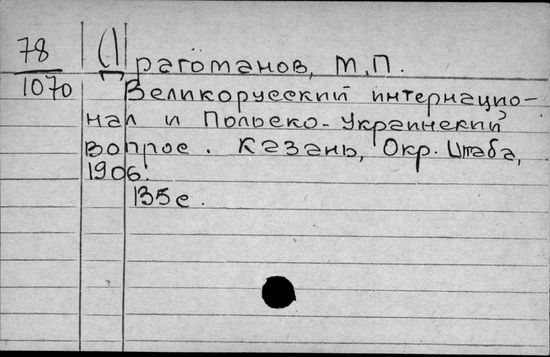 78
1070
Драгоманов, М.П.
Великорусский интернацио-
нал и Польско-Украинский
вопрос. Казань, Окр. Штаба,
1906.
135с.